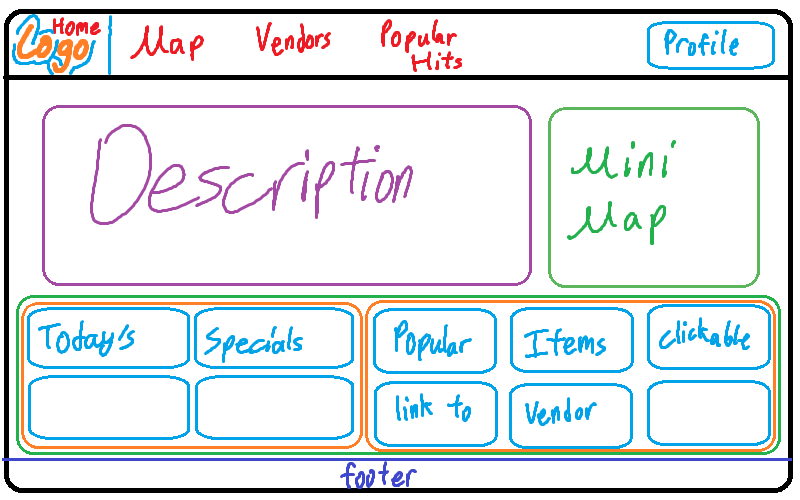 Home
Logo
Map
Vendors
Popular
Hits
Profile
Description
Mini
Map
Today's
Specials
Popular
Items
clickable
link to
Vendor
footer